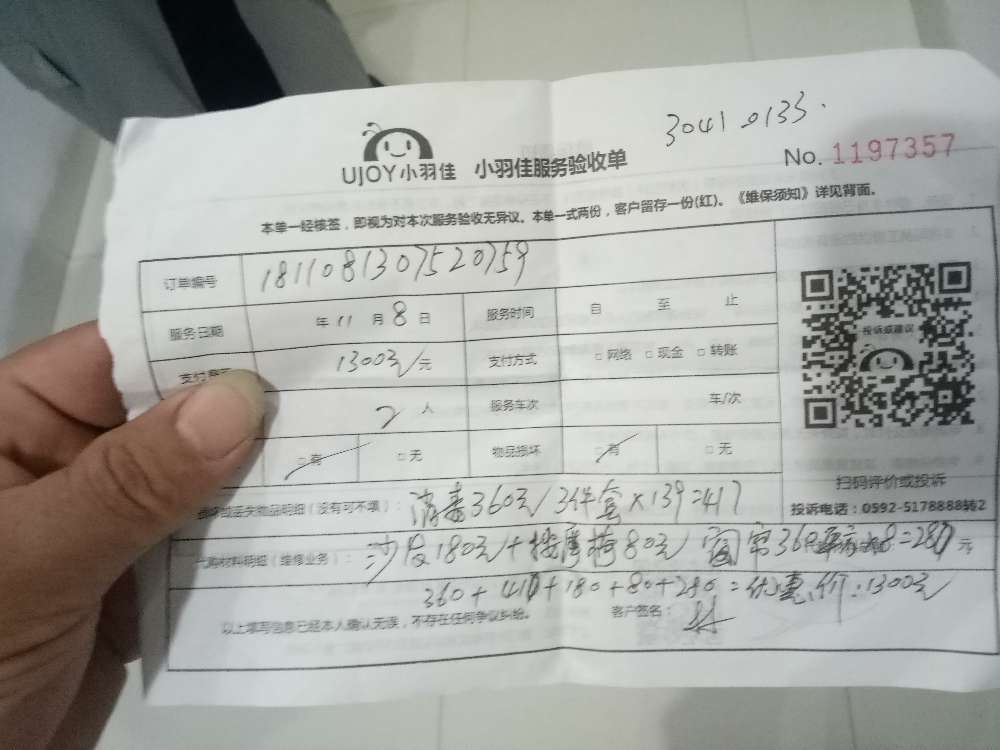 3041 0133.
UJOY小羽佳 小羽佳服务验收单
No. 1197357
本单一经核签，即视为对本次服务验收无异议。本单一式两份，客户留存一份(红)。《维保须知》详见背面。
订单编号 1811081307520759
服务日期 年 11 月 8 日 服务时间 自 至 止
支付 1300元/元 支付方式 □网络 □现金 □转账
2 人 服务车次 车/次
□有 □无 物品损坏 □有 □无
投诉或建议
扫码评价或投诉
投诉电话：0592-5178888转2
丢失物品明细（没有可不填）： 消毒360元/3件套×139=417
材料明细（维修业务）： 沙发180元/+按摩椅80元/ 元
360+417+180+80+280=优惠价:1300元
以上填写信息已经本人确认无误，不存在任何争议纠纷。 客户签名：